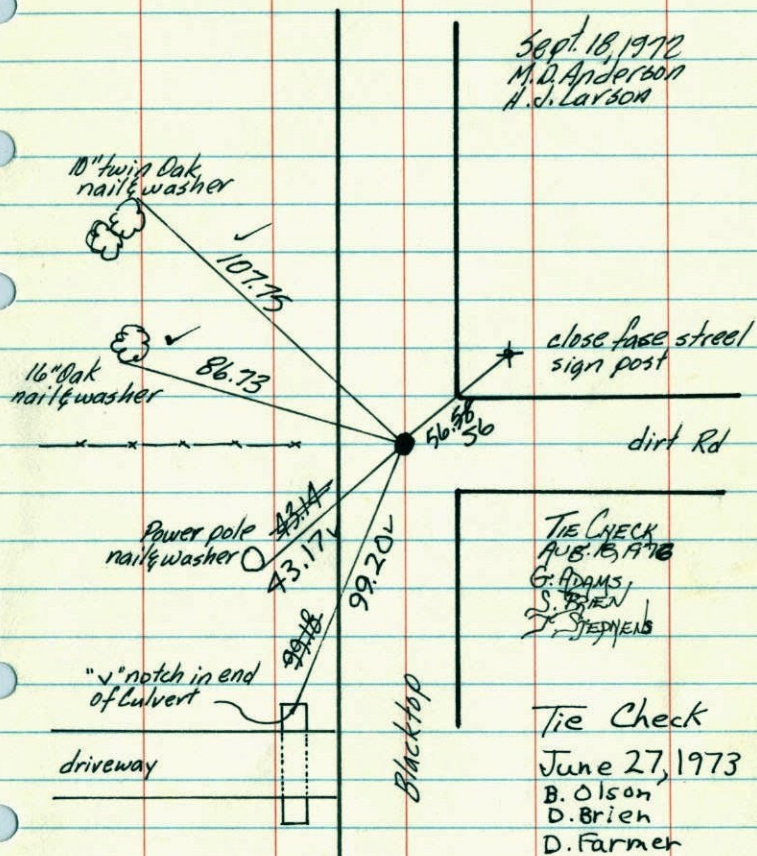 Sept. 18, 1972
M.D. Anderson
H.J. Larson
10" twin Oak
nail & washer
107.75
16" Oak
nail & washer
86.73
close fase streel
sign post
56.58
56
dirt Rd
Power pole
nail & washer
43.14
43.17
99.20
99.18
TIE CHECK
G. ADAMS
S. BRIEN
J. STEPHENS
"v" notch in end
of Culvert
driveway
Blacktop
Tie Check
June 27, 1973
B. Olson
D. Brien
D. Farmer